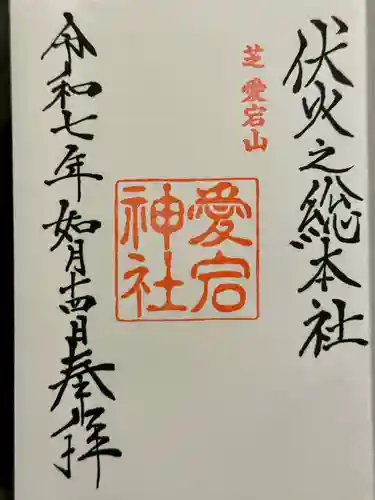 伏火之総本社
芝愛宕山
愛宕
神社
令和七年如月十四日奉拝